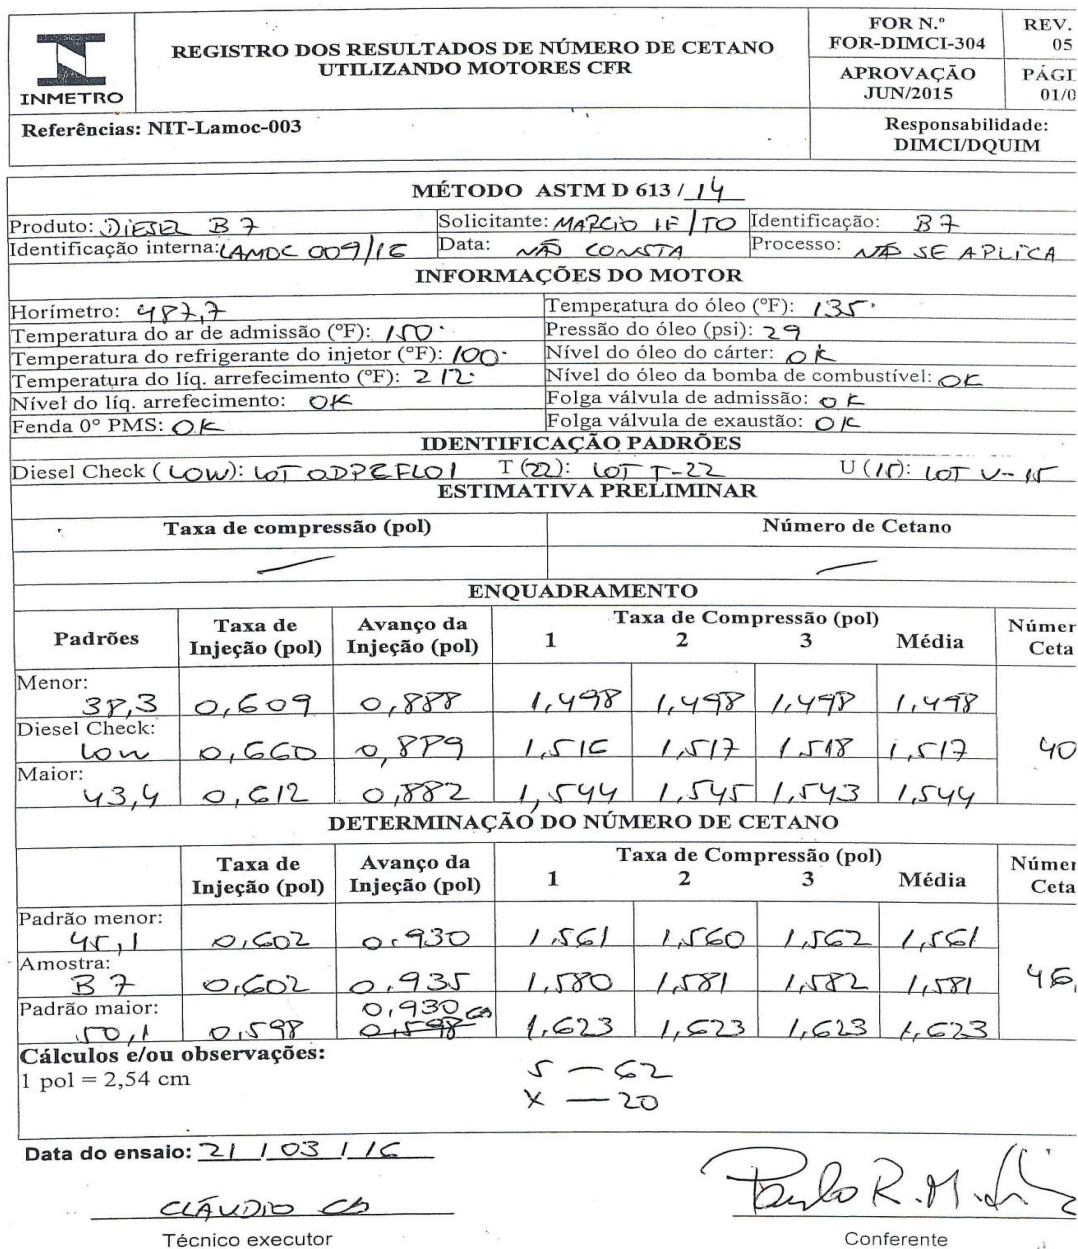 INMETRO
REGISTRO DOS RESULTADOS DE NÚMERO DE CETANO
UTILIZANDO MOTORES CFR
FOR N.º
FOR-DIMCI-304
REV.
05
APROVAÇÃO
JUN/2015
PÁGI
01/0
Referências: NIT-Lamoc-003
Responsabilidade:
DIMCI/DQUIM
MÉTODO ASTM D 613 / 14
Produto: DIESEL B7 Solicitante: MARCIO IF/TO Identificação: B7
Identificação interna: LAMOC 009/16 Data: NÃO CONSTA Processo: NÃO SE APLICA
INFORMAÇÕES DO MOTOR
Horímetro: 487,7 Temperatura do óleo (ºF): 135
Temperatura do ar de admissão (ºF): 150 Pressão do óleo (psi): 29
Temperatura do refrigerante do injetor (ºF): 100 Nível do óleo do cárter: OK
Temperatura do líq. arrefecimento (ºF): 212 Nível do óleo da bomba de combustível: OK
Nível do líq. arrefecimento: OK Folga válvula de admissão: OK
Fenda 0º PMS: OK Folga válvula de exaustão: OK
IDENTIFICAÇÃO PADRÕES
Diesel Check (LOW): LOT ODPEFL01 T (22): LOT T-22 U (15): LOT U-15
ESTIMATIVA PRELIMINAR
Taxa de compressão (pol) Número de Cetano
— —
ENQUADRAMENTO
Padrões
Taxa de
Injeção (pol)
Avanço da
Injeção (pol)
Taxa de Compressão (pol)
1 2 3 Média
Númer
Ceta
Menor:
38,3 0,609 0,888 1,498 1,498 1,498 1,498
Diesel Check:
low 0,660 0,889 1,516 1,517 1,518 1,517 40
Maior:
43,4 0,612 0,882 1,544 1,545 1,543 1,544
DETERMINAÇÃO DO NÚMERO DE CETANO
Taxa de
Injeção (pol)
Avanço da
Injeção (pol)
Taxa de Compressão (pol)
1 2 3 Média
Númer
Ceta
Padrão menor:
45,1 0,602 0,930 1,561 1,560 1,562 1,561
Amostra:
B7 0,602 0,935 1,580 1,581 1,582 1,581 46,
Padrão maior:
0,930 CB
50,1 0,598 0,598 1,623 1,623 1,623 1,623
Cálculos e/ou observações:
1 pol = 2,54 cm
5 — 62
X — 20
Data do ensaio: 21 / 03 / 16
CLÁUDIO CB
Técnico executor
Paulo R. M.
Conferente